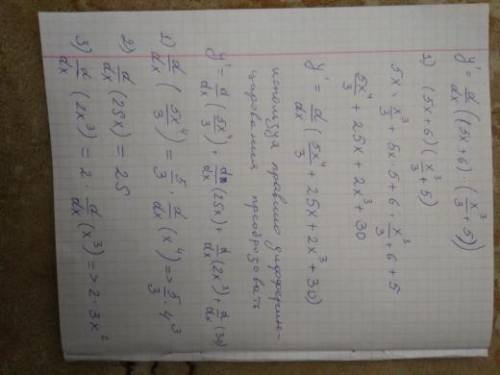 y' = d/dx ((5x+6) · (x³/3 + 5))
1) (5x+6)(x³/3 + 5)
5x · x³/3 + 5x · 5 + 6 · x³/3 + 6 + 5
5x⁴/3 + 25x + 2x³ + 30
y' = d/dx (5x⁴/3 + 25x + 2x³ + 30)
используя правило дифферин-
цирования преобразовать
y' = d/dx (5x⁴/3) + d/dx (25x) + d/dx (2x³) + d/dx (30)
1) d/dx (5x⁴/3) = 5/3 · d/dx (x⁴) => 5/3 · 4³
2) d/dx (25x) = 25
3) d/dx (2x³) = 2 · d/dx (x³) => 2 · 3x²